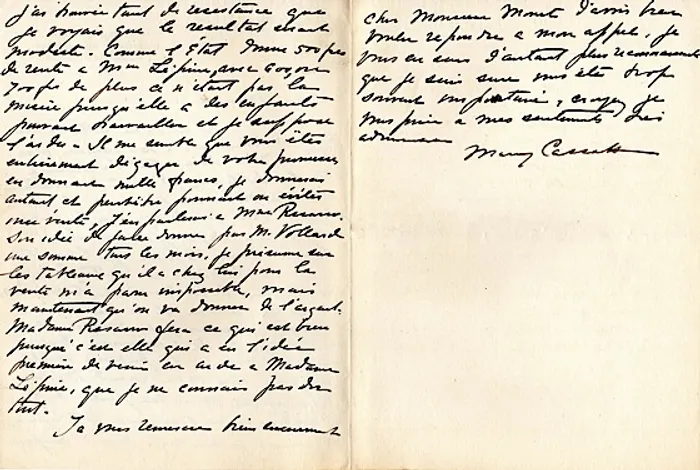 j'ai trouvé tant de resistance que
je voyais que le resultat serait
modeste. Comme l'État donne 500 frs
de rente a Mme Lépine, avec 600, ou
700 frs de plus ce n'etait pas, la
misère puisqu'elle a des enfants
pouvant travailler et je suppose
l'aider. Il me semble que vous êtes
entierement dégagé de votre promesse
en donnant mille francs, je donnerai
autant et peutêtre pourrait on éviter
une vente, j'en parlerai a Mme
Son idée de faire donner par M. Vollard
une somme tous les mois, je présume sur
les tableaux qu'il a chez lui pour la
vente m'a paru impossible, mais
maintenant qu'on va donner de l'argent.
Madame fera ce qui est bien
puisque c'est elle qui a eu l'idée
première de venir en aide a Madame
Lépine, que je ne connais pas du
tout.
Je vous remercie bien
cher Monsieur Monet d'avoir bien
voulu repondre a mon appel, je
vous en suis d'autant plus reconnaissante
que je suis sure vous êtes trop
souvent importuné, croyez je
vous prie a mes sentiments
Mary Cassatt